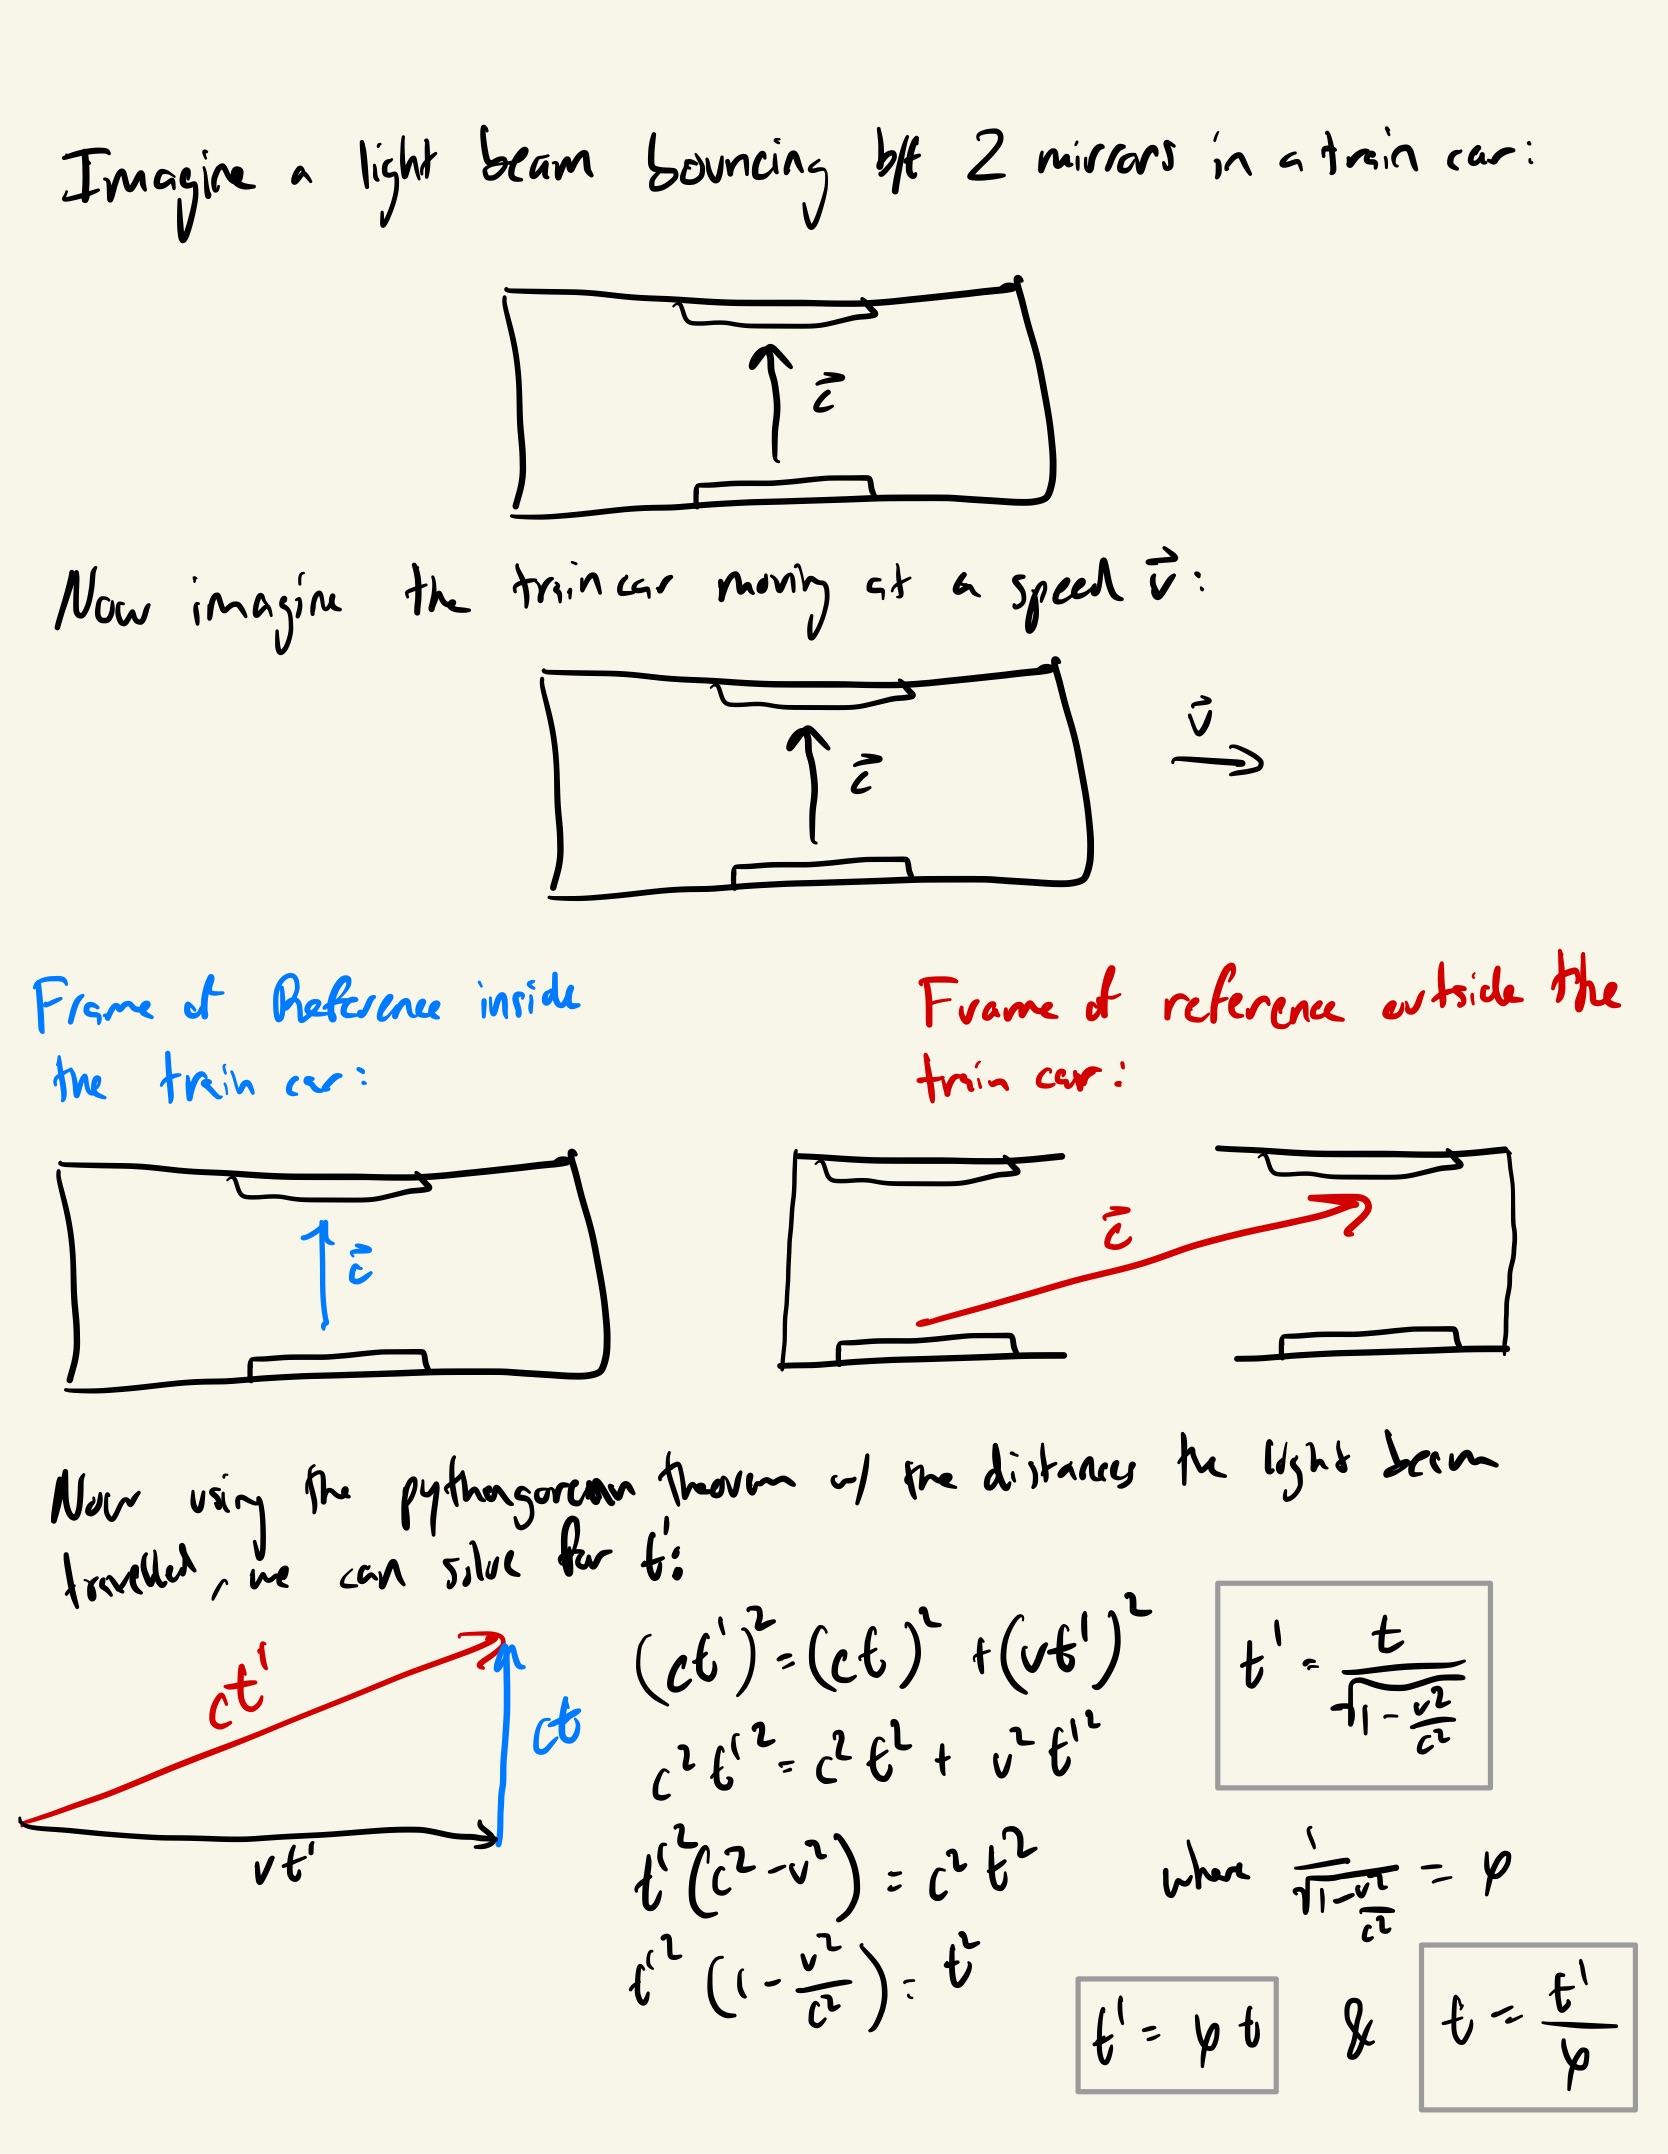 Imagine a light beam bouncing b/t 2 mirrors in a train car:
c⃗
Now imagine the train car moving at a speed v⃗:
c⃗
v⃗
Frame of Reference inside
the train car:
Frame of reference outside the
train car:
c⃗
c⃗
Now using the pythagorean theorem w/ the distances the light beam
travelled, we can solve for t':
ct'
ct
vt'
(ct')² = (ct)² + (vt')²
c² t'² = c² t² + v² t'²
t'² (c² - v²) = c² t²
t'² (1 - v²/c²) = t²
t' = t/√(1 - v²/c²)
where 1/√(1 - v²/c²) = φ
t' = φ t & t = t'/φ